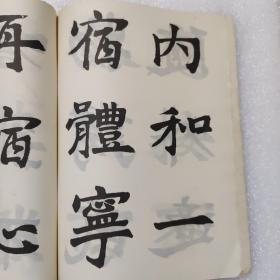 内和一
宿體寧
再宿心